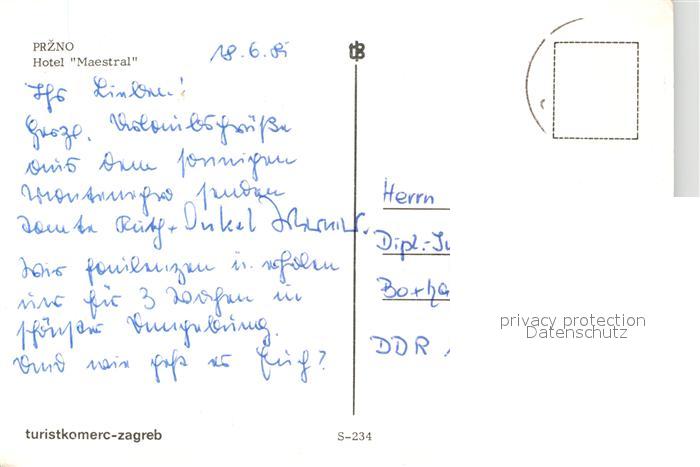 PRŽNO
Hotel "Maestral"
18.6.85
Ihr Lieben!
Herzl. Urlaubsgrüße
aus dem sonnigen
Montenegro senden
Tante Ruth + Onkel Werner.
Wir faulenzen u. erholen
uns für 3 Wochen in
schönster Umgebung.
Und wie geht es Euch?
Herrn
Dipl.-
DDR
privacy protection
Datenschutz
turistkomerc-zagreb
S-234